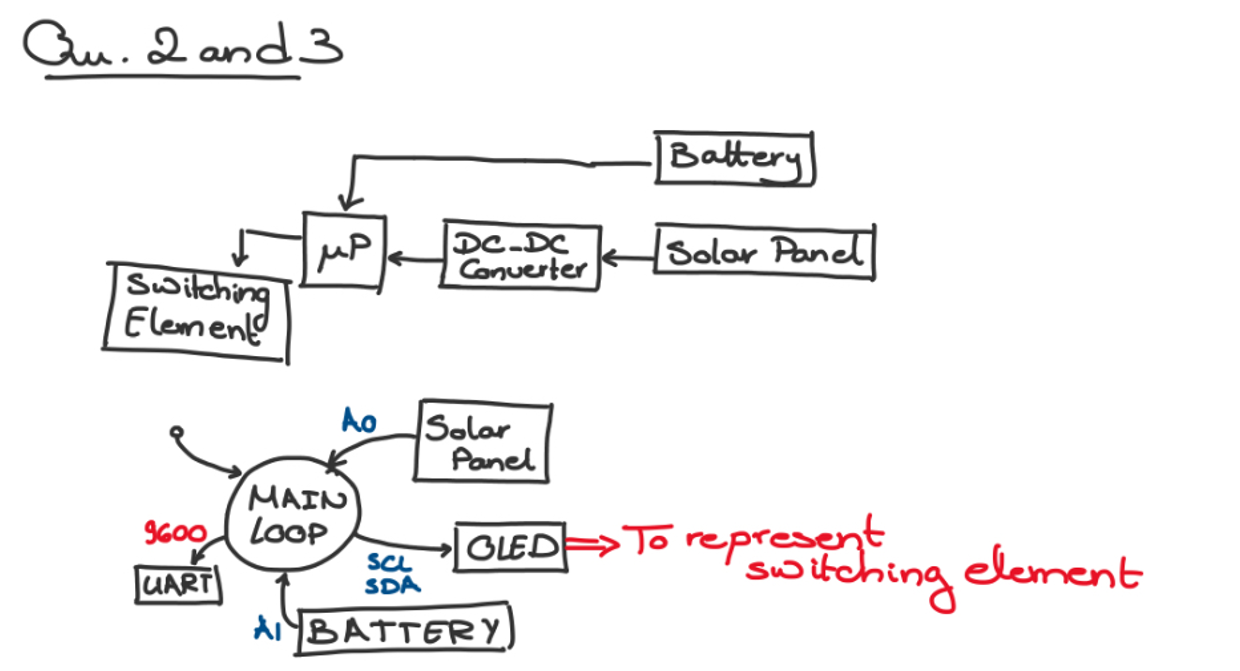 Qu. 2 and 3
Battery
µP
DC-DC
Converter
Solar Panel
Switching
Element
A0
Solar
Panel
MAIN
LOOP
9600
UART
SCL
SDA
OLED
To represent
switching element
A1
BATTERY